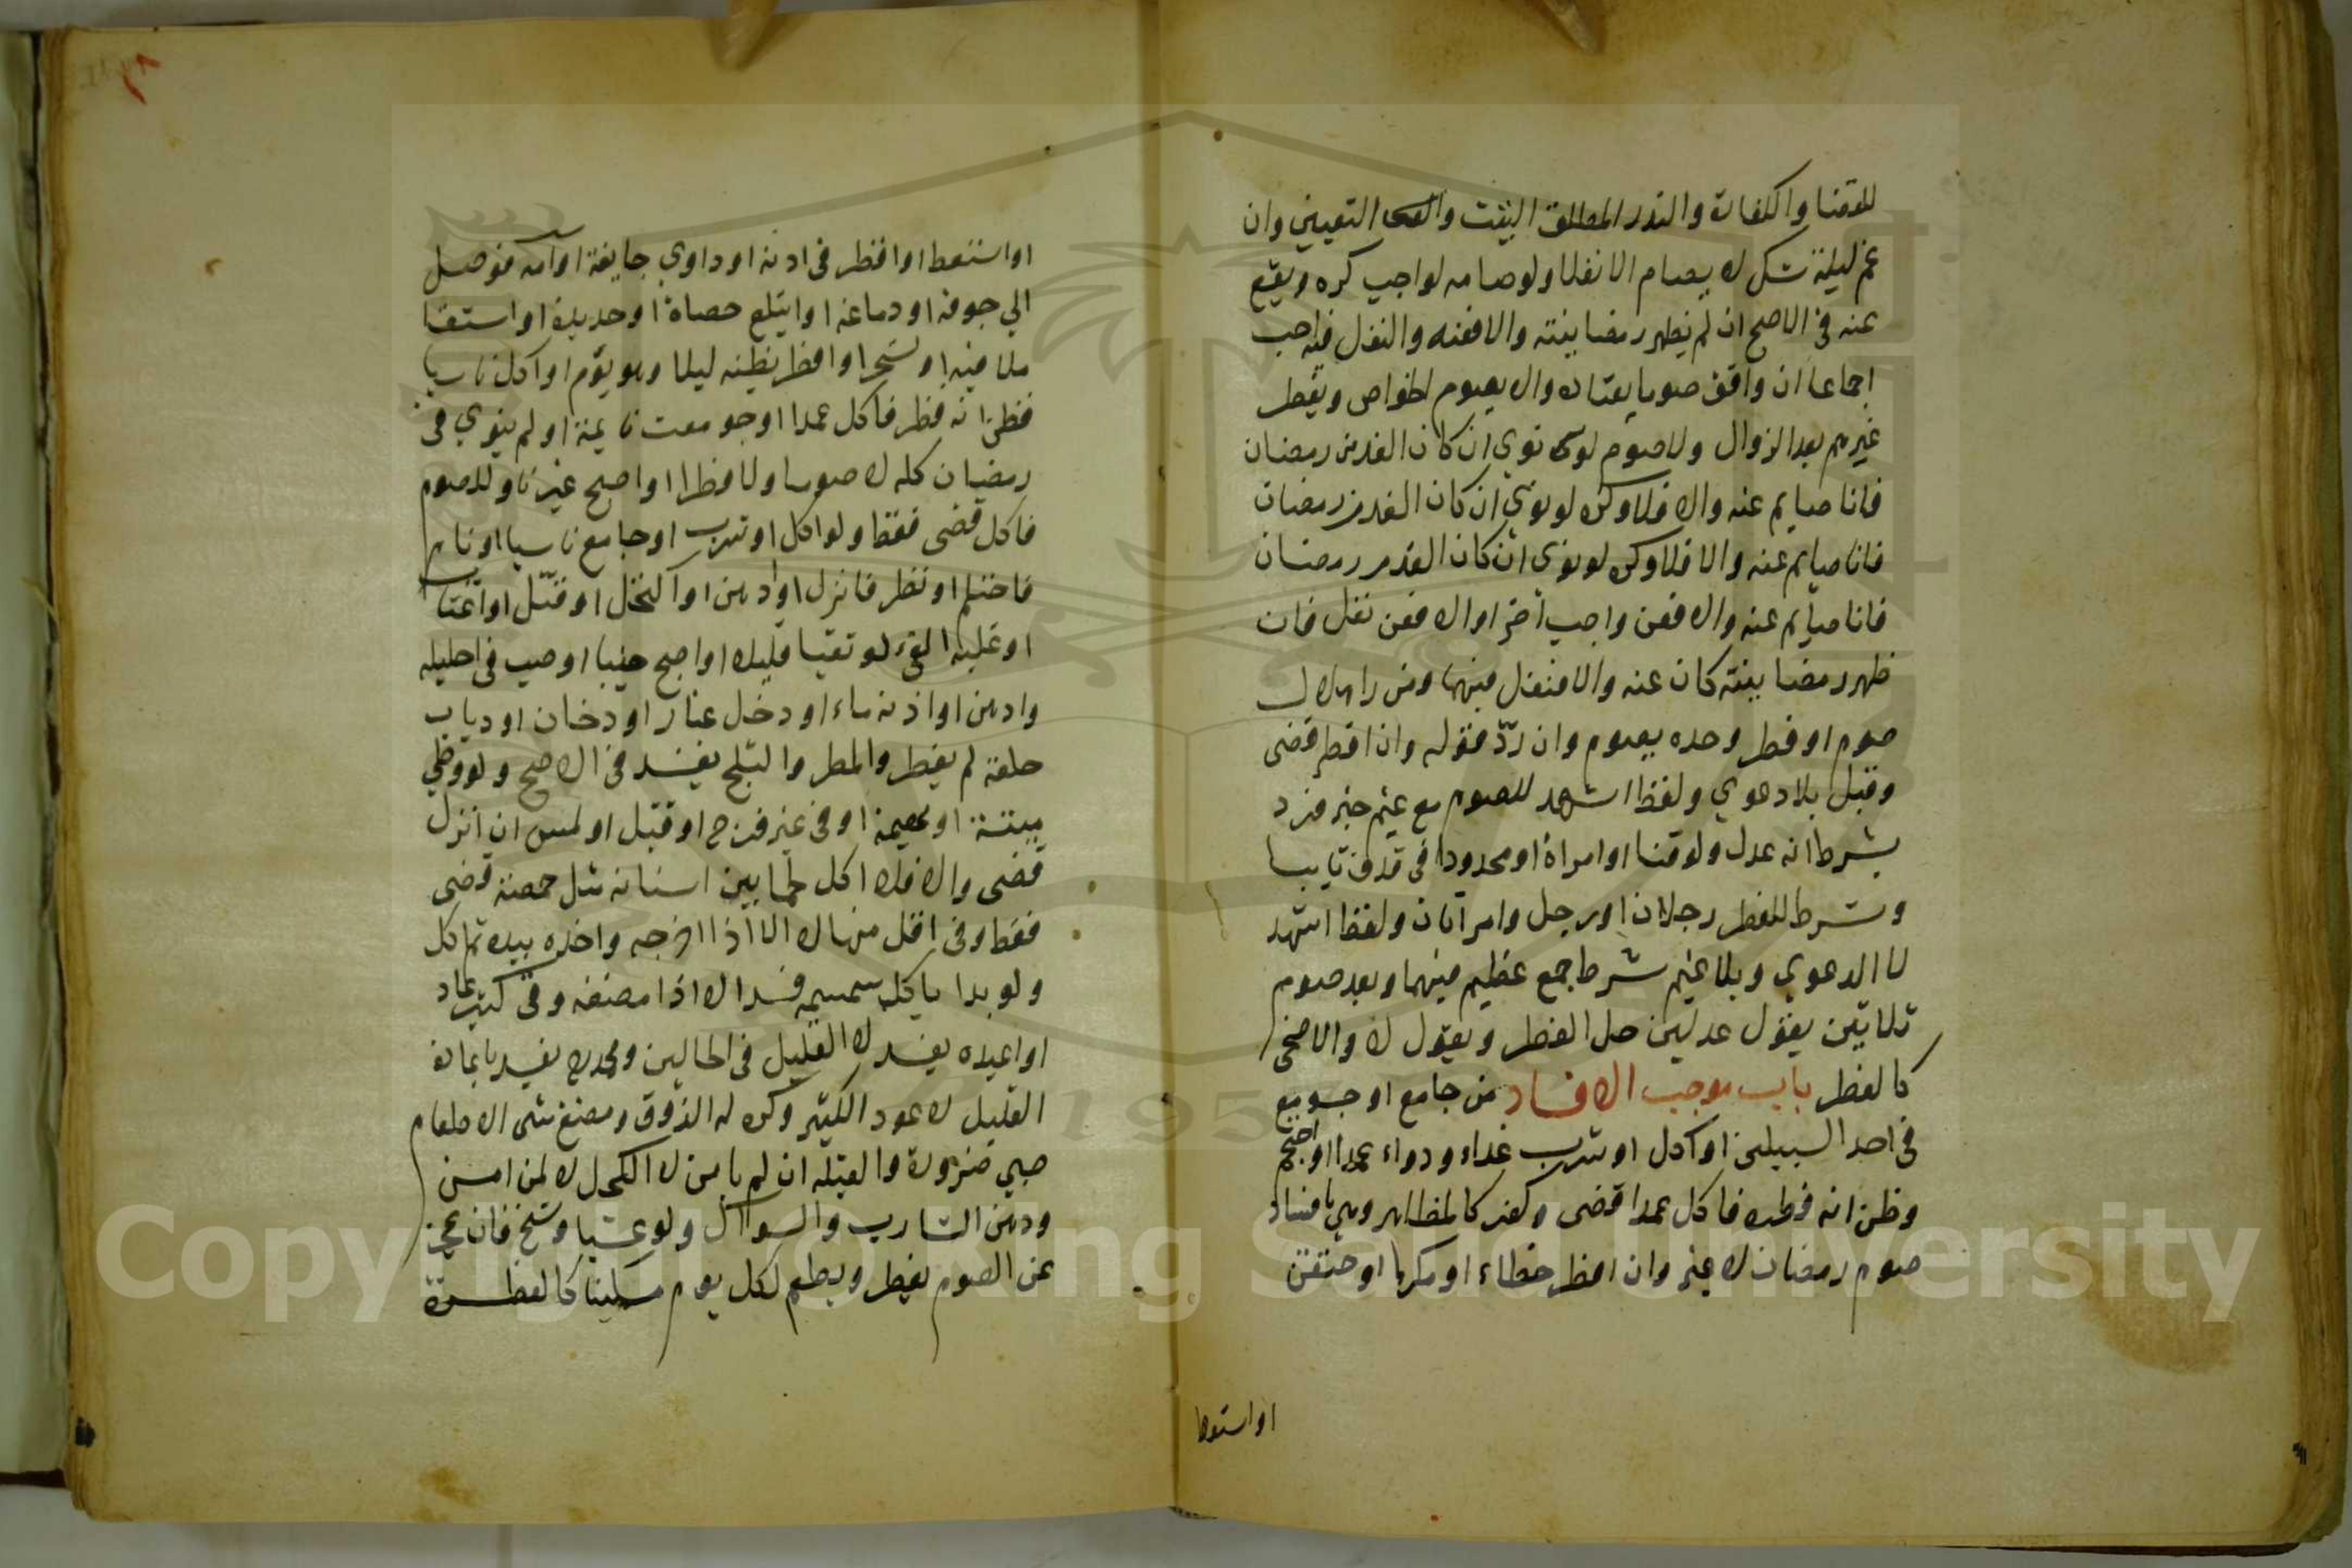 للقضا والكفارة والنذر المطلق التبييت والتعيين وان
غم ليلة شك لا يصام الا نفلا ولو صامه لواجب كره ويقع
عنه في الاصح ان لم يظهر رمضانيته والا فعنه والنفل فيه احب
اجماعا ان وافق صوما يعتاده والا يصوم الخواص ويفطر
غيرهم بعد الزوال ولا صوم لو نوي ان كان الغد من رمضان
فانا صايم عنه والا فلا وكره لو نوي ان كان الغد من رمضان
فانا صايم عنه والا فلا وكره لو نوي ان كان الغد من رمضان
فانا صايم عنه والا فعن واجب اخر او الا فعن نفل فان
ظهر رمضانيته كان عنه والا فنفل فيهما ومن راي هلال
صوم او فطر وحده يصوم وان ردّ قوله وان افطر قضى
وقبل بلا دعوي ولفظ اشهد للصوم مع غيم خبر فرد
بشرط انه عدل ولو قنا او امراة او محدودا في قذف تايبا
وشرط للفطر رجلان او رجل وامراتان ولفظ اشهد
لا الدعوي وبلا غيم شرط جمع عظيم فيهما وبعد صوم
ثلاثين بقول عدلين حل الفطر وبقول لا والاضحى
كالفطر باب موجب الافساد من جامع او جومع
في احد السبيلين او اكل او شرب غداء ودواء عمدا او احتجم
وظن انه فطره فاكل عمدا قضى وكفر كالمظاهر وهي بافساد
صوم رمضان لا غير وان افطر خطاء او مكرها او احتقن
او استعط
او استعط او اقطر في اذنه او داوي جايفة او آمه فوصل
الي جوفه او دماغه او ابتلع حصاة او حديدة او استقا
ملا فيه او تسحر او افطر بظنه ليلا وهو يوم او اكل ناسيا
فظن انه فطر فاكل عمدا او جومعت نايمة او لم ينوي في
رمضان كله لا صوما ولا فطرا او اصبح غير ناو للصوم
فاكل قضى فقط ولو اكل او شرب او جامع ناسيا او نام
فاحتلم او نظر فانزل او ادهن او اكتحل او قبّل او اغتاب
او غلبه القي او تقيا قليلا او اصبح جنبا او صب في احليله
وادهن او اذنه ماء او دخل غبار او دخان او ذباب
حلقه لم يفطر والمطر والثلج يفسد في الاصح ولو وطي
ميتة او بهيمة او في غير فرج او قبل او لمس ان انزل
قضى والا فلا اكل لحما بين اسنانه مثل حمصة قضى
فقط وفي اقل منها لا الا اذا اخرجه واخذه بيده ثم اكل
ولو بدا ياكل سمسمه فسد الا اذا مضغه وقي كثير عاد
او اعيده يفسد لا القليل في الحالين ومحمد يفسد باعادة
القليل لا عود الكثير وكره له الذوق ومضغ شى الا طعام
صبي ضرورة والقبلة ان لم يامن لا الكحل لا لمن امن
ودهن الشارب والسواك ولو عشيا وشيخ فان عجز
عن الصوم يفطر ويطعم لكل يوم مسكينا كالفطرة
Copyright © King Saud University
195